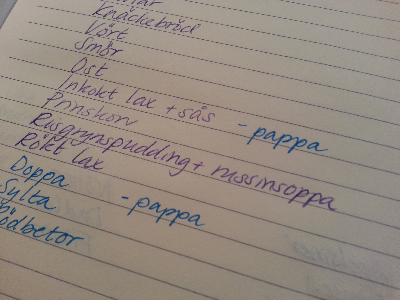 Knäckebröd
Vört
Smör
Ost
Inkokt lax + sås - pappa
Prinskorv
Risgrynspudding + russinsoppa
Rökt lax
Doppa
Sylta - pappa